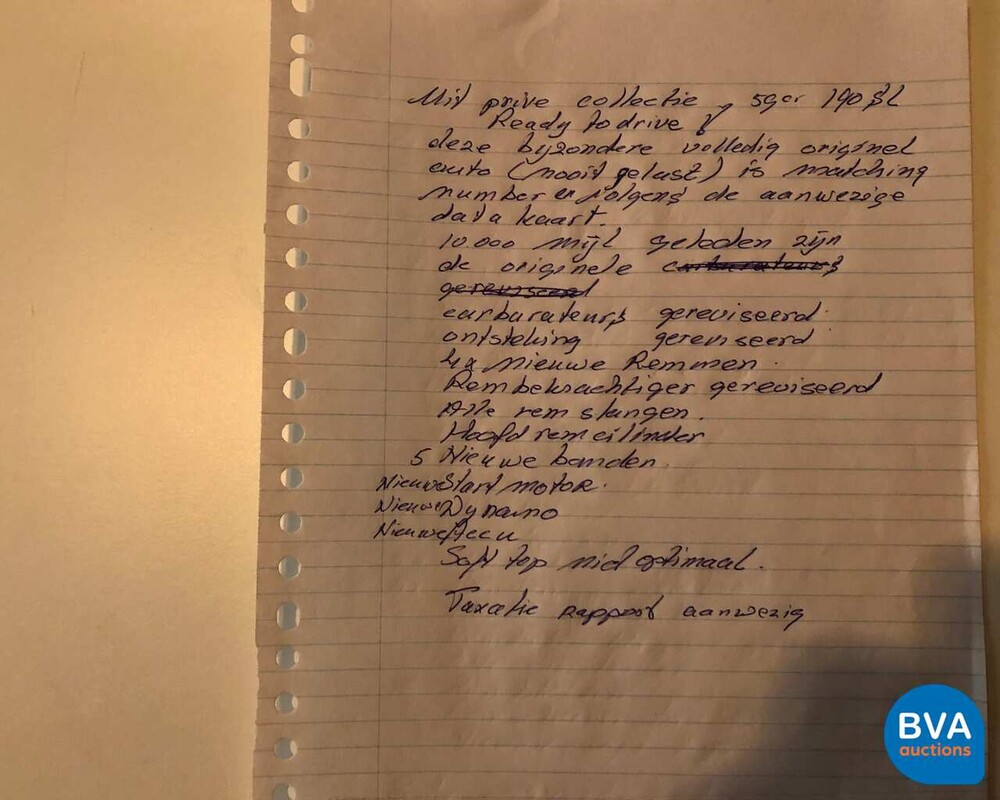 Uit prive collectie, 190 SL
Ready to drive
deze byzondere volledig origineel
auto (nooit gelast) is matching
number volgens de aanwezige
data kaart.
10.000 mijl geleden zijn
de originele carburateurs
gereviseerd
carburateurs gereviseerd
ontsteking gereviseerd
4x Nieuwe Remmen.
Rembekrachtiger gereviseerd
Alle rem slangen.
Hoofd rem cilinder
5 Nieuwe banden.
Nieuwe Start motor.
Nieuwe Dynamo
Nieuwe Accu
Soft top niet optimaal.
Taxatie rapport aanwezig
BVA
auctions